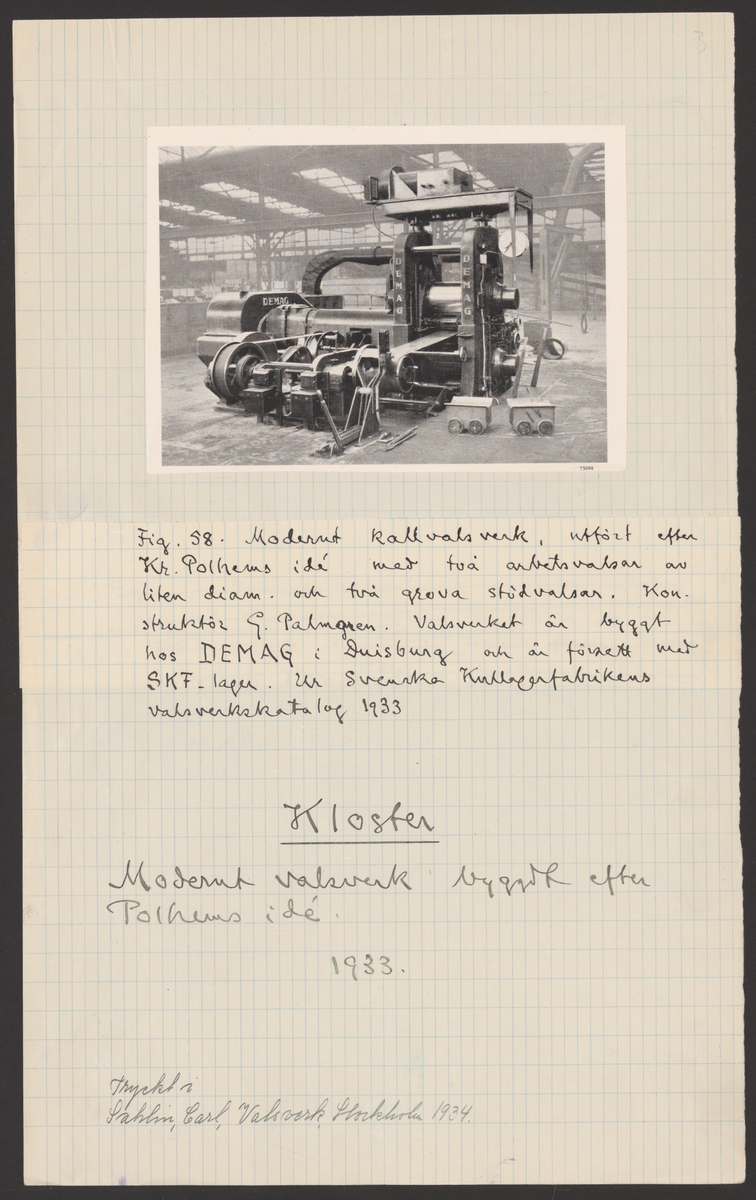 3
DEMAG
DEMAG
DEMAG
75000
Fig. 58. Modernt kallvalsverk, utfört efter
Kr. Polhems idé med två arbetsvalsar av
liten diam. och två grova stödvalsar. Kon-
struktör G. Palmgren. Valsverket är byggt
hos DEMAG i Duisburg och är försett med
SKF-lager. Ur Svenska Kullagerfabrikens
valsverkskatalog 1933
Kloster
Modernt valsverk byggdt efter
Polhems idé.
1933.
Tryckt i
Sahlin, Carl, Valsverk, Stockholm 1934.